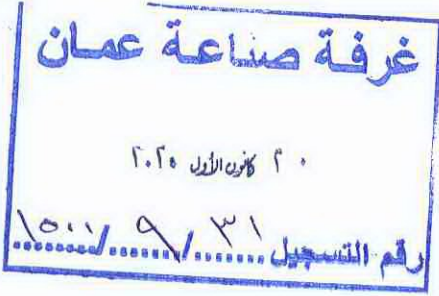 غرفة صناعة عمان
٠٢ كانون الأول ٢٠٢٥
رقم التسجيل ٣١ / ٩ / ١٥٠٠١